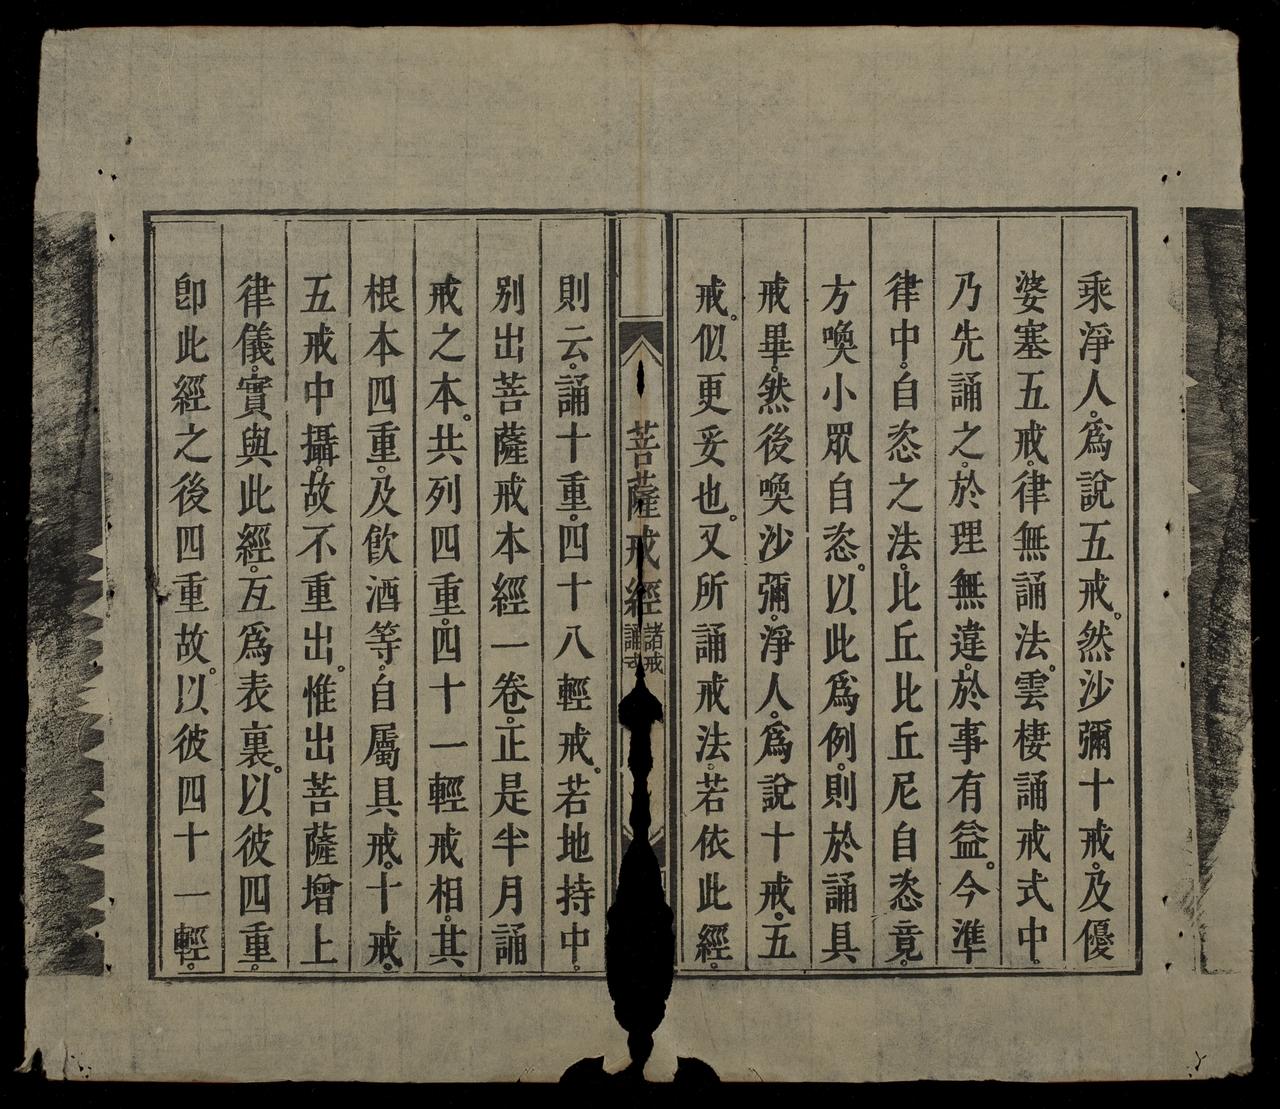 乘淨人。為說五戒。然沙彌十戒。及優
婆塞五戒。律無誦法。雲棲誦戒式中。
乃先誦之。於理無違。於事有益。今準
律中。自恣之法。比丘比丘尼自恣竟。
方喚小眾自恣。以此為例。則於誦具
戒畢。然後喚沙彌。淨人。為說十戒。五
戒。似更妥也。又所誦戒法。若依此經。
菩薩戒經 諸戒誦
則云。誦十重。四十八輕戒。若地持中。
別出菩薩戒本經一卷。正是半月誦
戒之本。共列四重。四十一輕戒相。其
根本四重。及飲酒等。自屬具戒。十戒。
五戒中攝。故不重出。惟出菩薩增上
律儀。實與此經。互為表裏。以彼四重。
即此經之後四重故。以彼四十一輕。